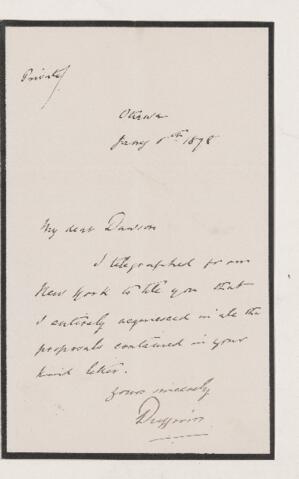 Private
Ottawa
Jany 6th 1878
My dear Dawson
I telegraphed from
New York to tell you that
I entirely acquiesced in all the
proposals contained in your
kind letter.
Yours sincerely
Dufferin